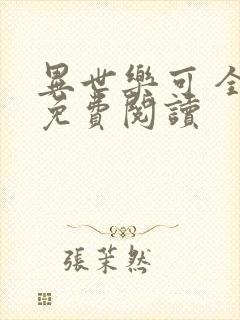 異世樂可 全
免費閱讀
張茉然